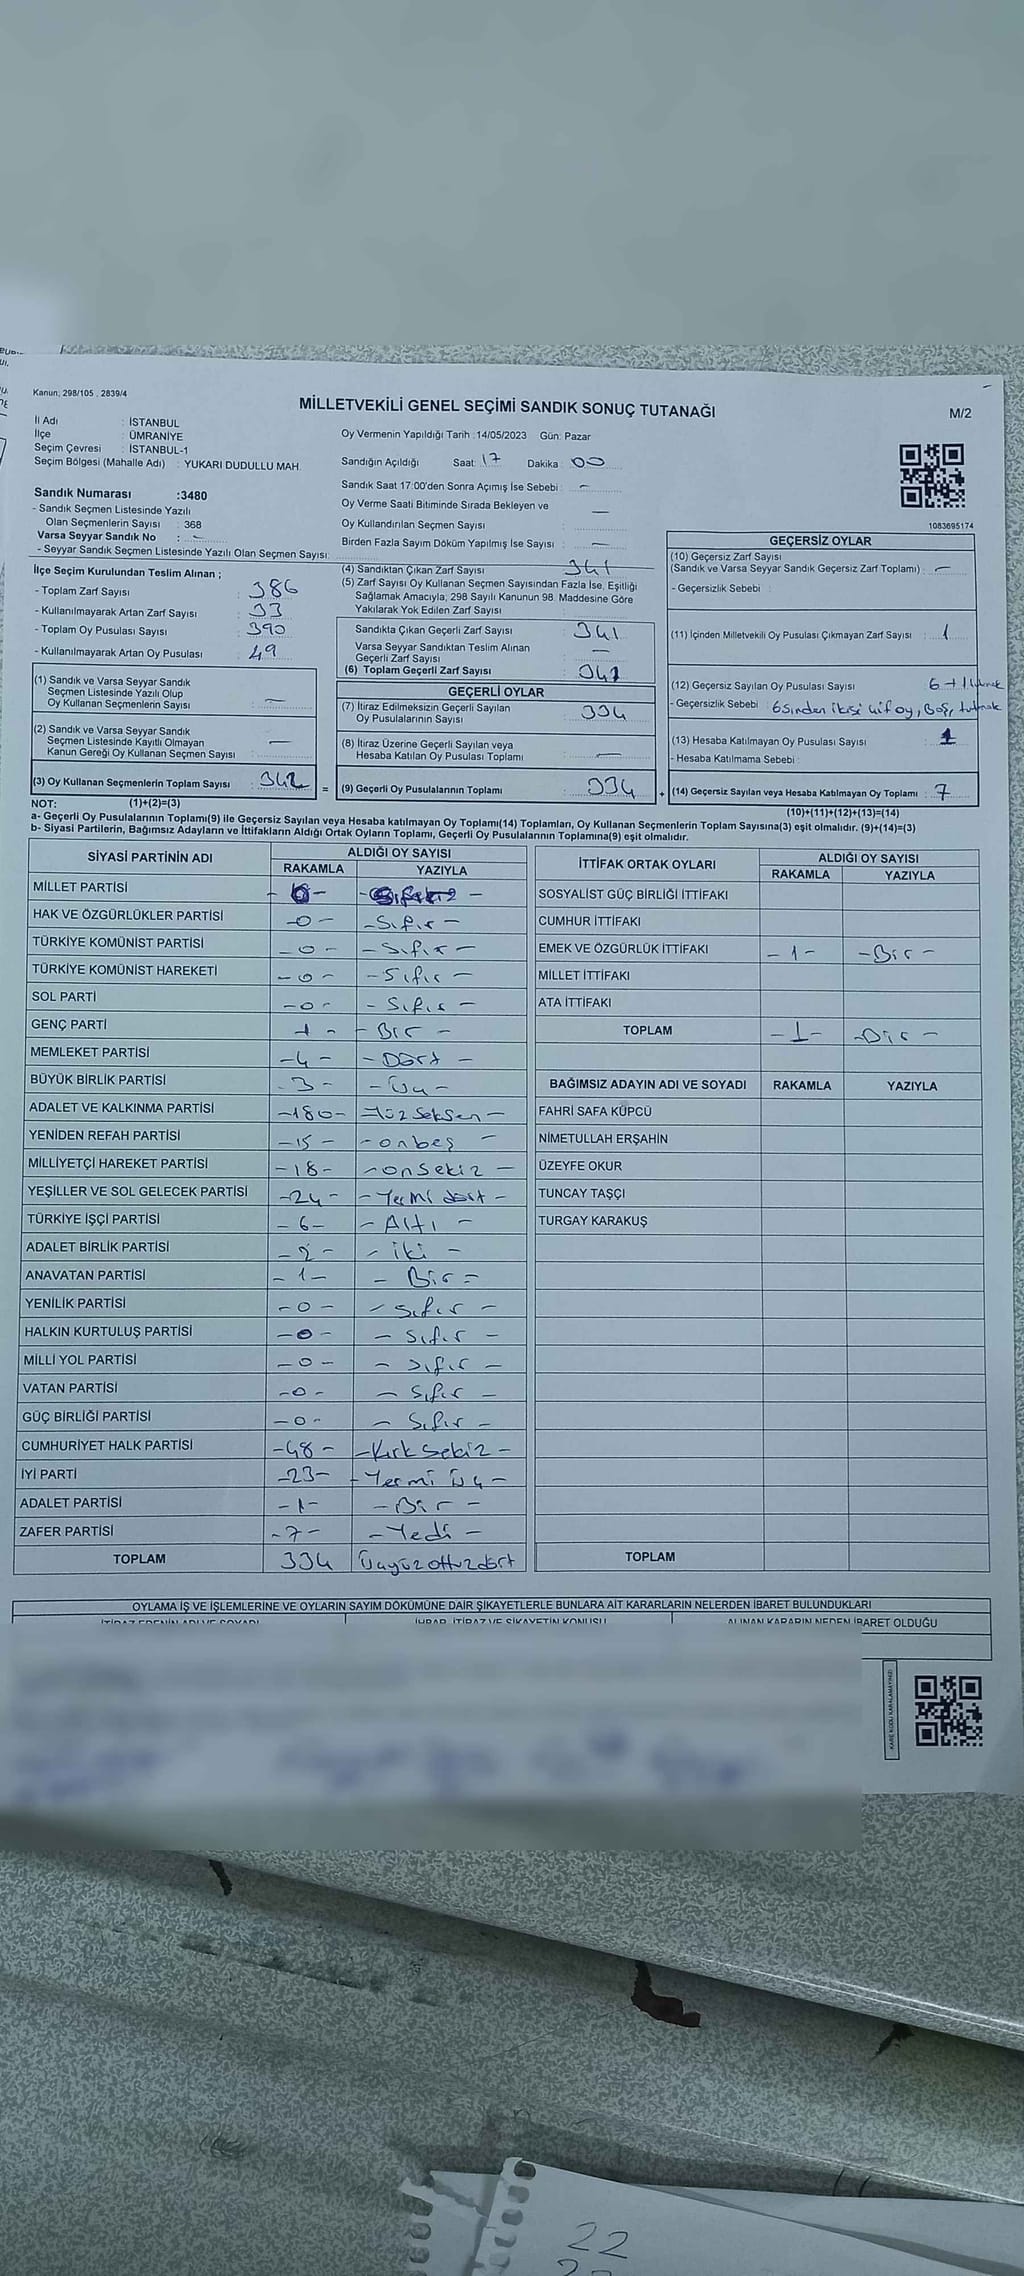 Kanun; 298/105 , 2839/4
MİLLETVEKİLİ GENEL SEÇİMİ SANDIK SONUÇ TUTANAĞI
M/2
İl Adı : İSTANBUL
İlçe : ÜMRANİYE
Seçim Çevresi : İSTANBUL-1
Seçim Bölgesi (Mahalle Adı) : YUKARI DUDULLU MAH.
Oy Vermenin Yapıldığı Tarih :14/05/2023 Gün: Pazar
Sandığın Açıldığı Saat: 17 Dakika : 00
Sandık Saat 17:00'den Sonra Açımış İse Sebebi : -
Oy Verme Saati Bitiminde Sırada Bekleyen ve
Oy Kullandırılan Seçmen Sayısı : —
Birden Fazla Sayım Döküm Yapılmış İse Sayısı : —
Sandık Numarası :3480
- Sandık Seçmen Listesinde Yazılı
Olan Seçmenlerin Sayısı : 368
Varsa Seyyar Sandık No : -
- Seyyar Sandık Seçmen Listesinde Yazılı Olan Seçmen Sayısı:
1083695174
İlçe Seçim Kurulundan Teslim Alınan ;
- Toplam Zarf Sayısı : 386
- Kullanılmayarak Artan Zarf Sayısı : 33
- Toplam Oy Pusulası Sayısı : 390
- Kullanılmayarak Artan Oy Pusulası : 49
(1) Sandık ve Varsa Seyyar Sandık
Seçmen Listesinde Yazılı Olup
Oy Kullanan Seçmenlerin Sayısı : —
(2) Sandık ve Varsa Seyyar Sandık
Seçmen Listesinde Kayıtlı Olmayan
Kanun Gereği Oy Kullanan Seçmen Sayısı : —
(3) Oy Kullanan Seçmenlerin Toplam Sayısı :
(4) Sandıktan Çıkan Zarf Sayısı : 341
(5) Zarf Sayısı Oy Kullanan Seçmen Sayısından Fazla İse, Eşitliği
Sağlamak Amacıyla, 298 Sayılı Kanunun 98. Maddesine Göre
Yakılarak Yok Edilen Zarf Sayısı :
Sandıkta Çıkan Geçerli Zarf Sayısı : 341
Varsa Seyyar Sandıktan Teslim Alınan
Geçerli Zarf Sayısı : —
(6) Toplam Geçerli Zarf Sayısı : 341
GEÇERLİ OYLAR
(7) İtiraz Edilmeksizin Geçerli Sayılan
Oy Pusulalarının Sayısı : 334
(8) İtiraz Üzerine Geçerli Sayılan veya
Hesaba Katılan Oy Pusulası Toplamı : —
= (9) Geçerli Oy Pusulalarının Toplamı : 334
GEÇERSİZ OYLAR
(10) Geçersiz Zarf Sayısı
(Sandık ve Varsa Seyyar Sandık Geçersiz Zarf Toplamı) : —
- Geçersizlik Sebebi :
(11) İçinden Milletvekili Oy Pusulası Çıkmayan Zarf Sayısı : 1
(12) Geçersiz Sayılan Oy Pusulası Sayısı : 6+1
- Geçersizlik Sebebi : 6sından ikisi çift oy, Boş,
(13) Hesaba Katılmayan Oy Pusulası Sayısı :
- Hesaba Katılmama Sebebi :
+ (14) Geçersiz Sayılan veya Hesaba Katılmayan Oy Toplamı : 7
NOT: (1)+(2)=(3)
(10)+(11)+(12)+(13)=(14)
a- Geçerli Oy Pusulalarının Toplamı(9) ile Geçersiz Sayılan veya Hesaba katılmayan Oy Toplamı(14) Toplamları, Oy Kullanan Seçmenlerin Toplam Sayısına(3) eşit olmalıdır. (9)+(14)=(3)
b- Siyasi Partilerin, Bağımsız Adayların ve İttifakların Aldığı Ortak Oyların Toplamı, Geçerli Oy Pusulalarının Toplamına(9) eşit olmalıdır.
SİYASİ PARTİNİN ADI
ALDIĞI OY SAYISI
RAKAMLA YAZIYLA
MİLLET PARTİSİ
HAK VE ÖZGÜRLÜKLER PARTİSİ -0- -Sıfır-
TÜRKİYE KOMÜNİST PARTİSİ -0- -Sıfır-
TÜRKİYE KOMÜNİST HAREKETİ -0- -Sıfır-
SOL PARTİ -0- -Sıfır-
GENÇ PARTİ -1- -Bir-
MEMLEKET PARTİSİ -4- -Dört-
BÜYÜK BİRLİK PARTİSİ -3- -Üç-
ADALET VE KALKINMA PARTİSİ -180- -Yüz Seksen-
YENİDEN REFAH PARTİSİ -15- -onbeş-
MİLLİYETÇİ HAREKET PARTİSİ -18- -onsekiz-
YEŞİLLER VE SOL GELECEK PARTİSİ -24- -Yermi dört-
TÜRKİYE İŞÇİ PARTİSİ -6- -Altı-
ADALET BİRLİK PARTİSİ -2- -iki-
ANAVATAN PARTİSİ -1- -Bir-
YENİLİK PARTİSİ -0- -sıfır-
HALKIN KURTULUŞ PARTİSİ -0- -sıfır-
MİLLİ YOL PARTİSİ -0- -sıfır-
VATAN PARTİSİ -0- -sıfır-
GÜÇ BİRLİĞİ PARTİSİ -0- -sıfır-
CUMHURİYET HALK PARTİSİ -48- -Kırk sekiz-
İYİ PARTİ -23- -Yermi üç-
ADALET PARTİSİ -1- -Bir-
ZAFER PARTİSİ -7- -Yedi-
TOPLAM 334 Üçyüz ottuzdört
İTTİFAK ORTAK OYLARI
ALDIĞI OY SAYISI
RAKAMLA YAZIYLA
SOSYALİST GÜÇ BİRLİĞİ İTTİFAKI
CUMHUR İTTİFAKI
EMEK VE ÖZGÜRLÜK İTTİFAKI -1- -Bir-
MİLLET İTTİFAKI
ATA İTTİFAKI
TOPLAM -1- -Bir-
BAĞIMSIZ ADAYIN ADI VE SOYADI RAKAMLA YAZIYLA
FAHRİ SAFA KÜPCÜ
NİMETULLAH ERŞAHİN
ÜZEYFE OKUR
TUNCAY TAŞÇI
TURGAY KARAKUŞ
TOPLAM
OYLAMA İŞ VE İŞLEMLERİNE VE OYLARIN SAYIM DÖKÜMÜNE DAİR ŞİKAYETLERLE BUNLARA AİT KARARLARIN NELERDEN İBARET BULUNDUKLARI
İTİRAZ EDENİN ADI VE SOYADI
İHBAR, İTİRAZ VE ŞİKAYETİN KONUSU
ALINAN KARARIN NEDEN İBARET OLDUĞU
KARE KODU KARALAMAYINIZ!
22